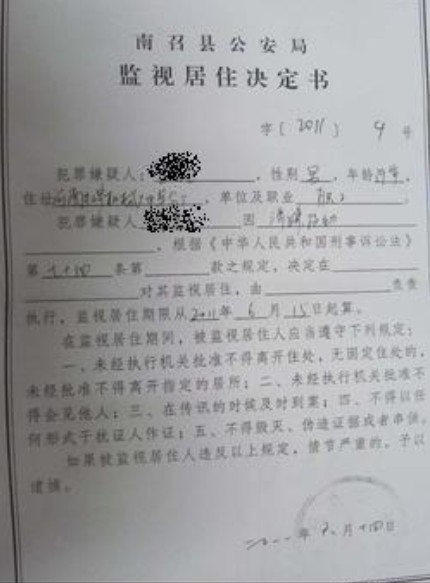 南召县公安局
监视居住决定书
字〔2011〕 9 号
犯罪嫌疑人: ,性别 男 ,年龄
住址 ,单位及职业
犯罪嫌疑人 因
,根据《中华人民共和国刑事诉讼法》
第 条第 款之规定,决定在
对其监视居住,由 负责
执行,监视居住期限从2011年 6 月 15日起算。
在监视居住期间,被监视居住人应当遵守下列规定:
一、未经执行机关批准不得离开住处,无固定住处的,
未经批准不得离开指定的居所;二、未经执行机关批准不
得会见他人;三、在传讯的时候及时到案;四、不得以任
何形式干扰证人作证;五、不得毁灭、伪造证据或者串供。
如果被监视居住人违反以上规定,情节严重的,予以
逮捕。
二〇一一年六月十四日